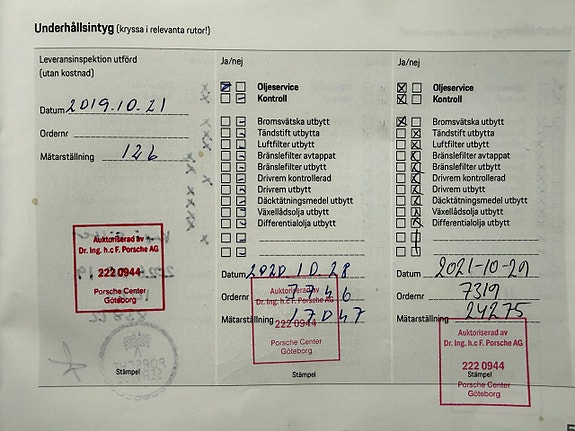 Underhållsintyg (kryssa i relevanta rutor!)
Leveransinspektion utförd
(utan kostnad)
Datum 2019.10.21
Ordernr
Mätarställning 126
Auktoriserad av
Dr. Ing. h.c F. Porsche AG
222 0944
Porsche Center
Göteborg
Stämpel
Ja/nej
Oljeservice
Kontroll
Bromsvätska utbytt
Tändstift utbytta
Luftfilter utbytt
Bränslefilter avtappat
Bränslefilter utbytt
Drivrem kontrollerad
Drivrem utbytt
Däcktätningsmedel utbytt
Växellådsolja utbytt
Differentialolja utbytt
Datum 2020 10.28
Ordernr 7746
Mätarställning 17047
Auktoriserad av
Dr. Ing. h.c F. Porsche AG
222 0944
Porsche Center
Göteborg
Stämpel
Ja/nej
Oljeservice
Kontroll
Bromsvätska utbytt
Tändstift utbytta
Luftfilter utbytt
Bränslefilter avtappat
Bränslefilter utbytt
Drivrem kontrollerad
Drivrem utbytt
Däcktätningsmedel utbytt
Växellådsolja utbytt
Differentialolja utbytt
Datum 2021-10-29
Ordernr 7319
Mätarställning 24275
Auktoriserad av
Dr. Ing. h.c F. Porsche AG
222 0944
Stämpel
Porsche Center
Göteborg